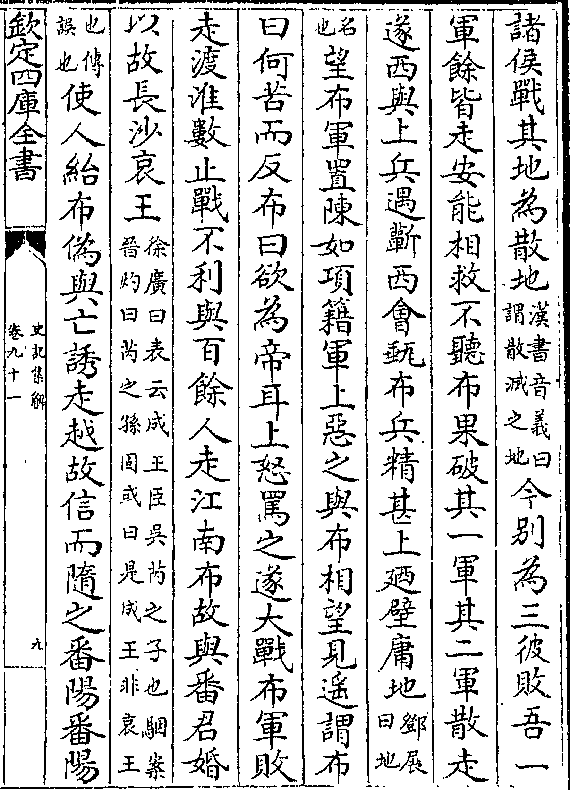 諸侯戰其地為散地漢書音義曰謂散滅之地今別為三彼敗吾一
軍餘皆走安能相救不聽布果破其一軍其二軍散走
遂西與上兵遇蘄西會甀布兵精甚上廼壁庸地鄧展曰地
名也望布軍置陳如項籍軍上惡之與布相望見遙謂布
曰何苦而反布曰欲為帝耳上怒罵之遂大戰布軍敗
走渡淮數止戰不利與百餘人走江南布故與番君婚
以故長沙哀王徐廣曰表云成王臣吳芮之子也駰案晉灼曰芮之孫固或曰是成王非哀王
也傳誤也使人紿布偽與亡誘走越故信而隨之番陽番陽
欽定四庫全書
史記集解
卷九十一
九